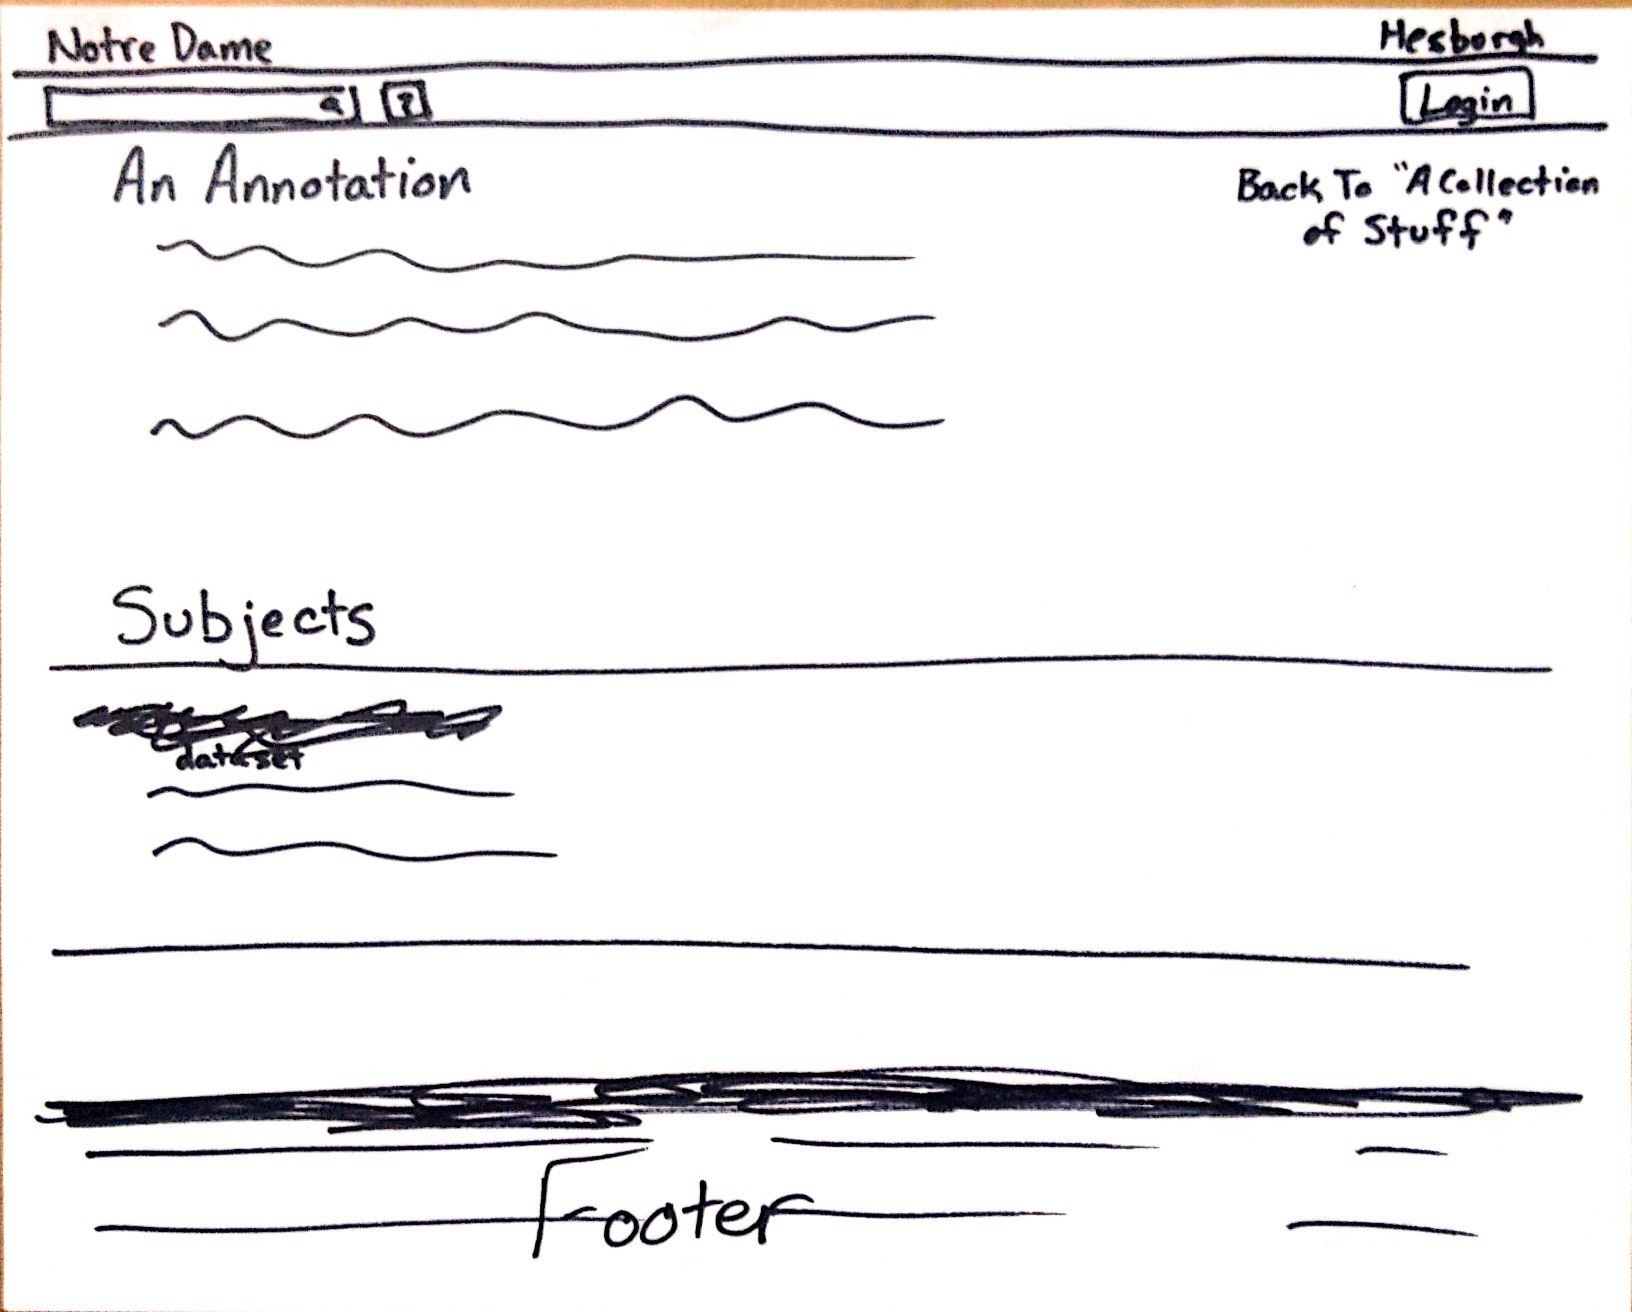 Notre Dame
Hesborgh
?
Login
An Annotation
Back To "A Collection
of Stuff"
Subjects
dataset
Footer